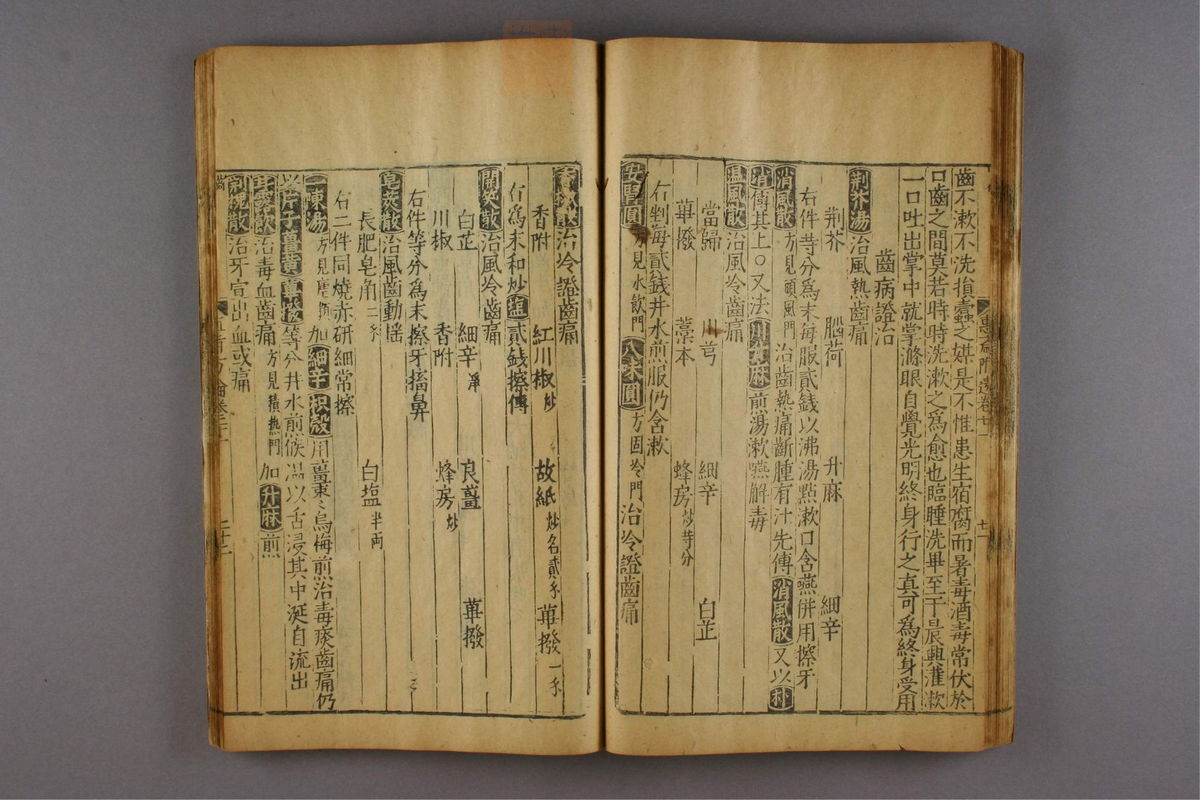 齒不漱不洗損蠹之媒是不惟患生宿腐而暑毒酒毒常伏於
口齒之間莫若時時洗漱之為愈也臨睡洗畢至于晨興灌漱
一口吐出掌中就掌滌眼自覺光明終身行之真可為終身受用
齒病證治
荊芥湯治風熱齒痛
荊芥 薄荷 升麻 細辛
右件等分為末每服貳錢以沸湯點漱口含嚥併用擦牙
消風散方見頭風門治齒熱痛齗腫有汁先傅消風散又以朴
消傅其上○又法川升麻煎湯漱嚥解毒
溫風散治風冷齒痛
當歸 川芎 細辛 白芷
蓽撥 藁本 蜂房炒等分
右剉每貳錢井水煎服仍含漱
安腎圓方見水飲門八味圓方固冷門治冷證齒痛
香椒散治冷證齒痛
香附 紅川椒炒 故紙炒各貳錢 蓽撥一錢
右為末和炒塩貳錢擦傅
開笑散治風冷齒痛
白芷 細辛淨 良薑 蓽撥
川椒 香附 蜂房炒
右件等分為末擦牙搐鼻
皂莢散治風齒動搖
長肥皂角二錢 白塩半兩
右二件同燒赤研細常擦
加細辛枳殼用薑棗烏梅煎治毒痰齒痛仍
以片子薑黃蓽撥等分井水煎候溫以舌浸其中涎自流出
治毒血齒痛方見積熱門加升麻煎
治牙宣出血或痛